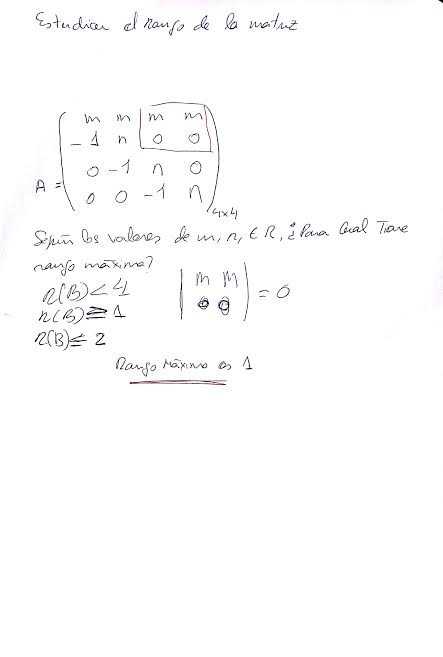 Estudiar el rango de la matriz
m m m m
- 1 n 0 0
A = 0 -1 n 0
0 0 -1 n 4x4
Según los valores de m, n, ∈ R, ¿Para Cual Tiene
rango máximo?
r(B) < 4
r(B) ≥ 1
r(B) ≤ 2
| m m |
| 0 0 | = 0
Rango máximo es 1